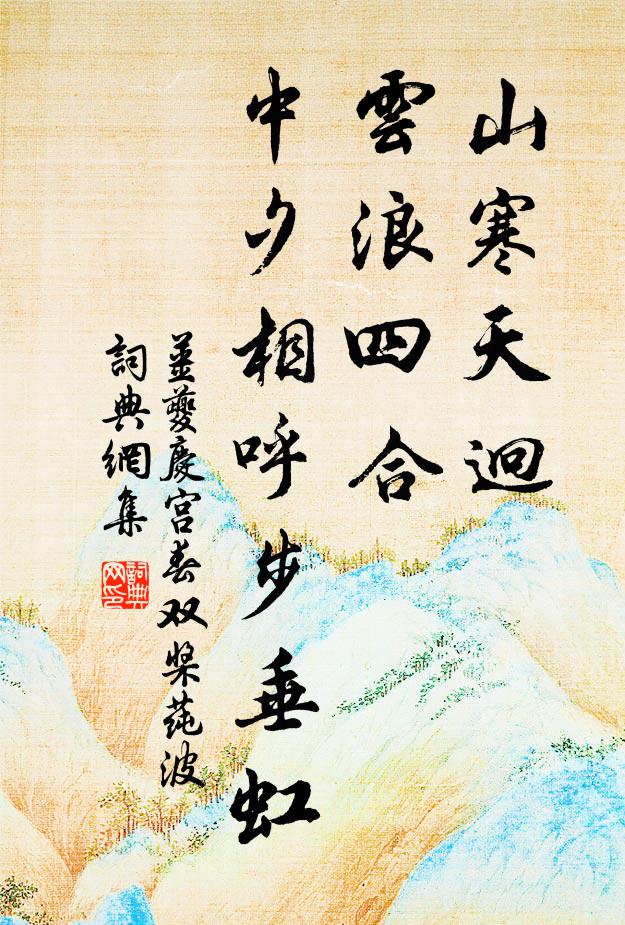 山寒天迥
雲浪四合
中夕相呼步垂虹
姜夔慶宮春双桨莼波
詞典網集
詞典
网印